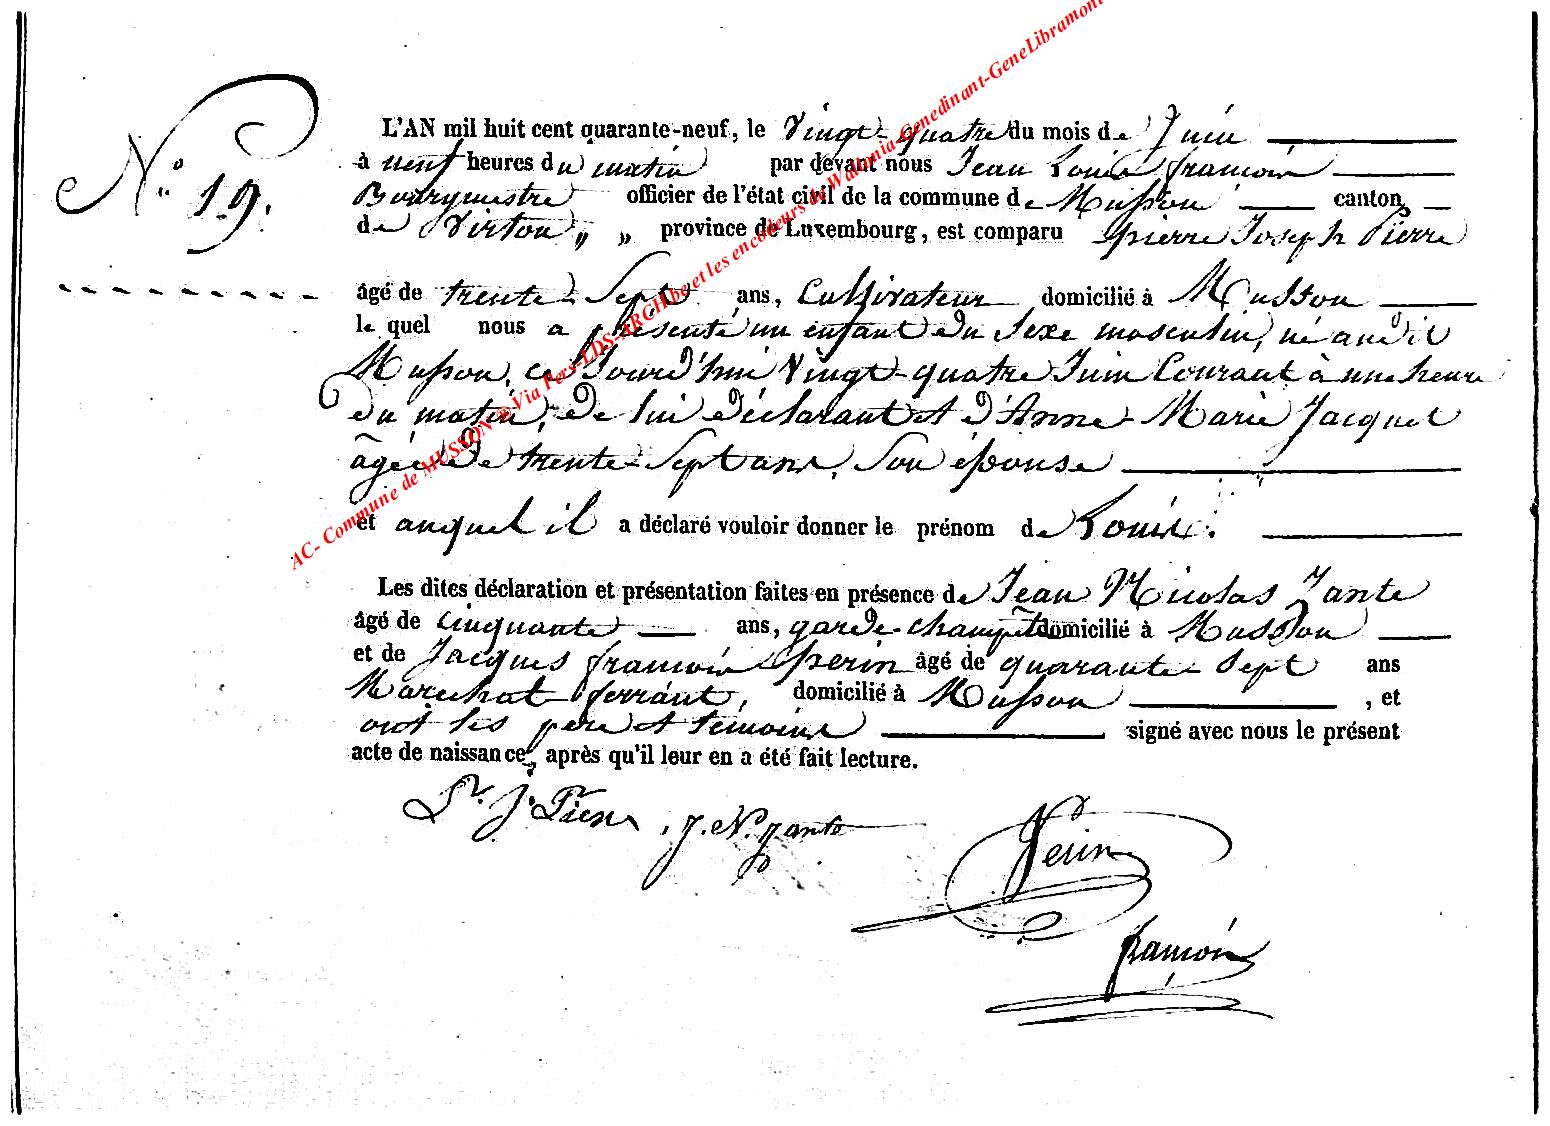 N° 19.
L'AN mil huit cent quarante-neuf, le Vingt-quatre du mois de Juin
à neuf heures du matin par devant nous Jean Louis françois
Bourgmestre officier de l'état civil de la commune de Musson canton
de Virton „ „ province de Luxembourg, est comparu pierre Joseph Pierre
âgé de trente-Sept ans, Cultivateur domicilié à Musson
le quel nous a présenté un enfant du Sexe masculin, né audit
Musson, ce Jourd'hui Vingt-quatre Juin Courant à une heure
du matin, de lui déclarant et d'Anne-Marie Jacquet
âgée de trente-Sept ans, Son épouse
et auquel il a déclaré vouloir donner le prénom de Louis.
Les dites déclaration et présentation faites en présence de Jean Nicolas Jante
âgé de cinquante ans, garde-champêt domicilié à Musson
et de Jacques françois perin âgé de quarante-Sept ans
Marechal ferrant, domicilié à Musson , et
ont les père et témoins signé avec nous le présent
acte de naissance, après qu'il leur en a été fait lecture.
Pr. J. Pierre, J. N. Jante
Perin
françois
AC- Commune de MUSSON ® Via Pers-LDS-ARCH.be et les encodeurs de Wallonia-Genedinant-GeneLibramont